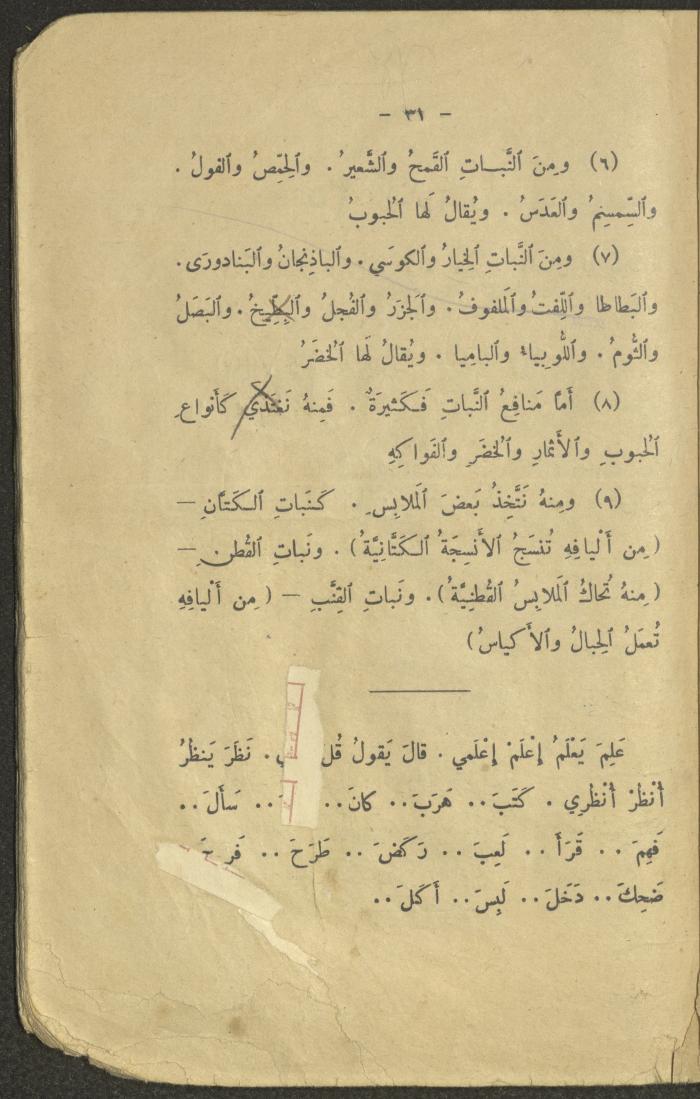 - ٣١ -
(٦) ومِنَ ٱلنَّبـاتِ ٱلقَمحُ وٱلشَّعيرُ . وٱلحِمّصُ وٱلفولُ .
وٱلسِّمسِمُ وٱلعَدَسُ . ويُقالُ لَها ٱلحُبوبُ
(٧) ومِنَ ٱلنَّباتِ ٱلخِيارُ وٱلكوسَي . وٱلباذِنجانُ وٱلبَنادورَى .
وٱلبَطاطا وٱللِّفتُ وٱلمَلفوفُ . وٱلجَزَرُ وٱلفُجلُ وٱلبِطّيخُ . وٱلبَصَلُ
وٱلثُّومُ . وٱللُّوبِياءُ وٱلبامِيا . ويُقالُ لَها ٱلخُضَرُ
(٨) أَمّا مَنافِعُ ٱلنَّباتِ فَكَثيرَةٌ . فَمِنهُ نَغتَذي كَأَنواعِ
ٱلحُبوبِ وٱلأَثمارِ وٱلخُضَرِ وٱلفَواكِهِ
(٩) ومِنهُ نَتَّخِذُ بَعضَ ٱلمَلابِسِ . كَنَباتِ ٱلكَتّانِ —
(مِن أَليافِهِ تُنسَجُ ٱلأَنسِجَةُ ٱلكَتّانِيَّةُ) . ونَباتِ ٱلقُطنِ —
(مِنهُ تُحاكُ ٱلمَلابِسُ ٱلقُطنِيَّةُ) . ونَباتِ ٱلقِنَّبِ — (مِن أَليافِهِ
تُعمَلُ ٱلحِبالُ وٱلأَكياسُ)
عَلِمَ يَعْلَمُ إِعْلَمْ إِعْلَمي . قالَ يَقولُ قُل . نَظَرَ يَنظُرُ
أُنْظُرْ أُنْظُرِي . كَتَبَ .. هَرَبَ .. كانَ .. .. سَأَلَ ..
فَهِمَ .. قَرَأَ .. لَعِبَ .. رَكَضَ .. طَرَحَ .. فَرِحَ
ضَحِكَ .. دَخَلَ .. لَبِسَ .. أَكَلَ ..